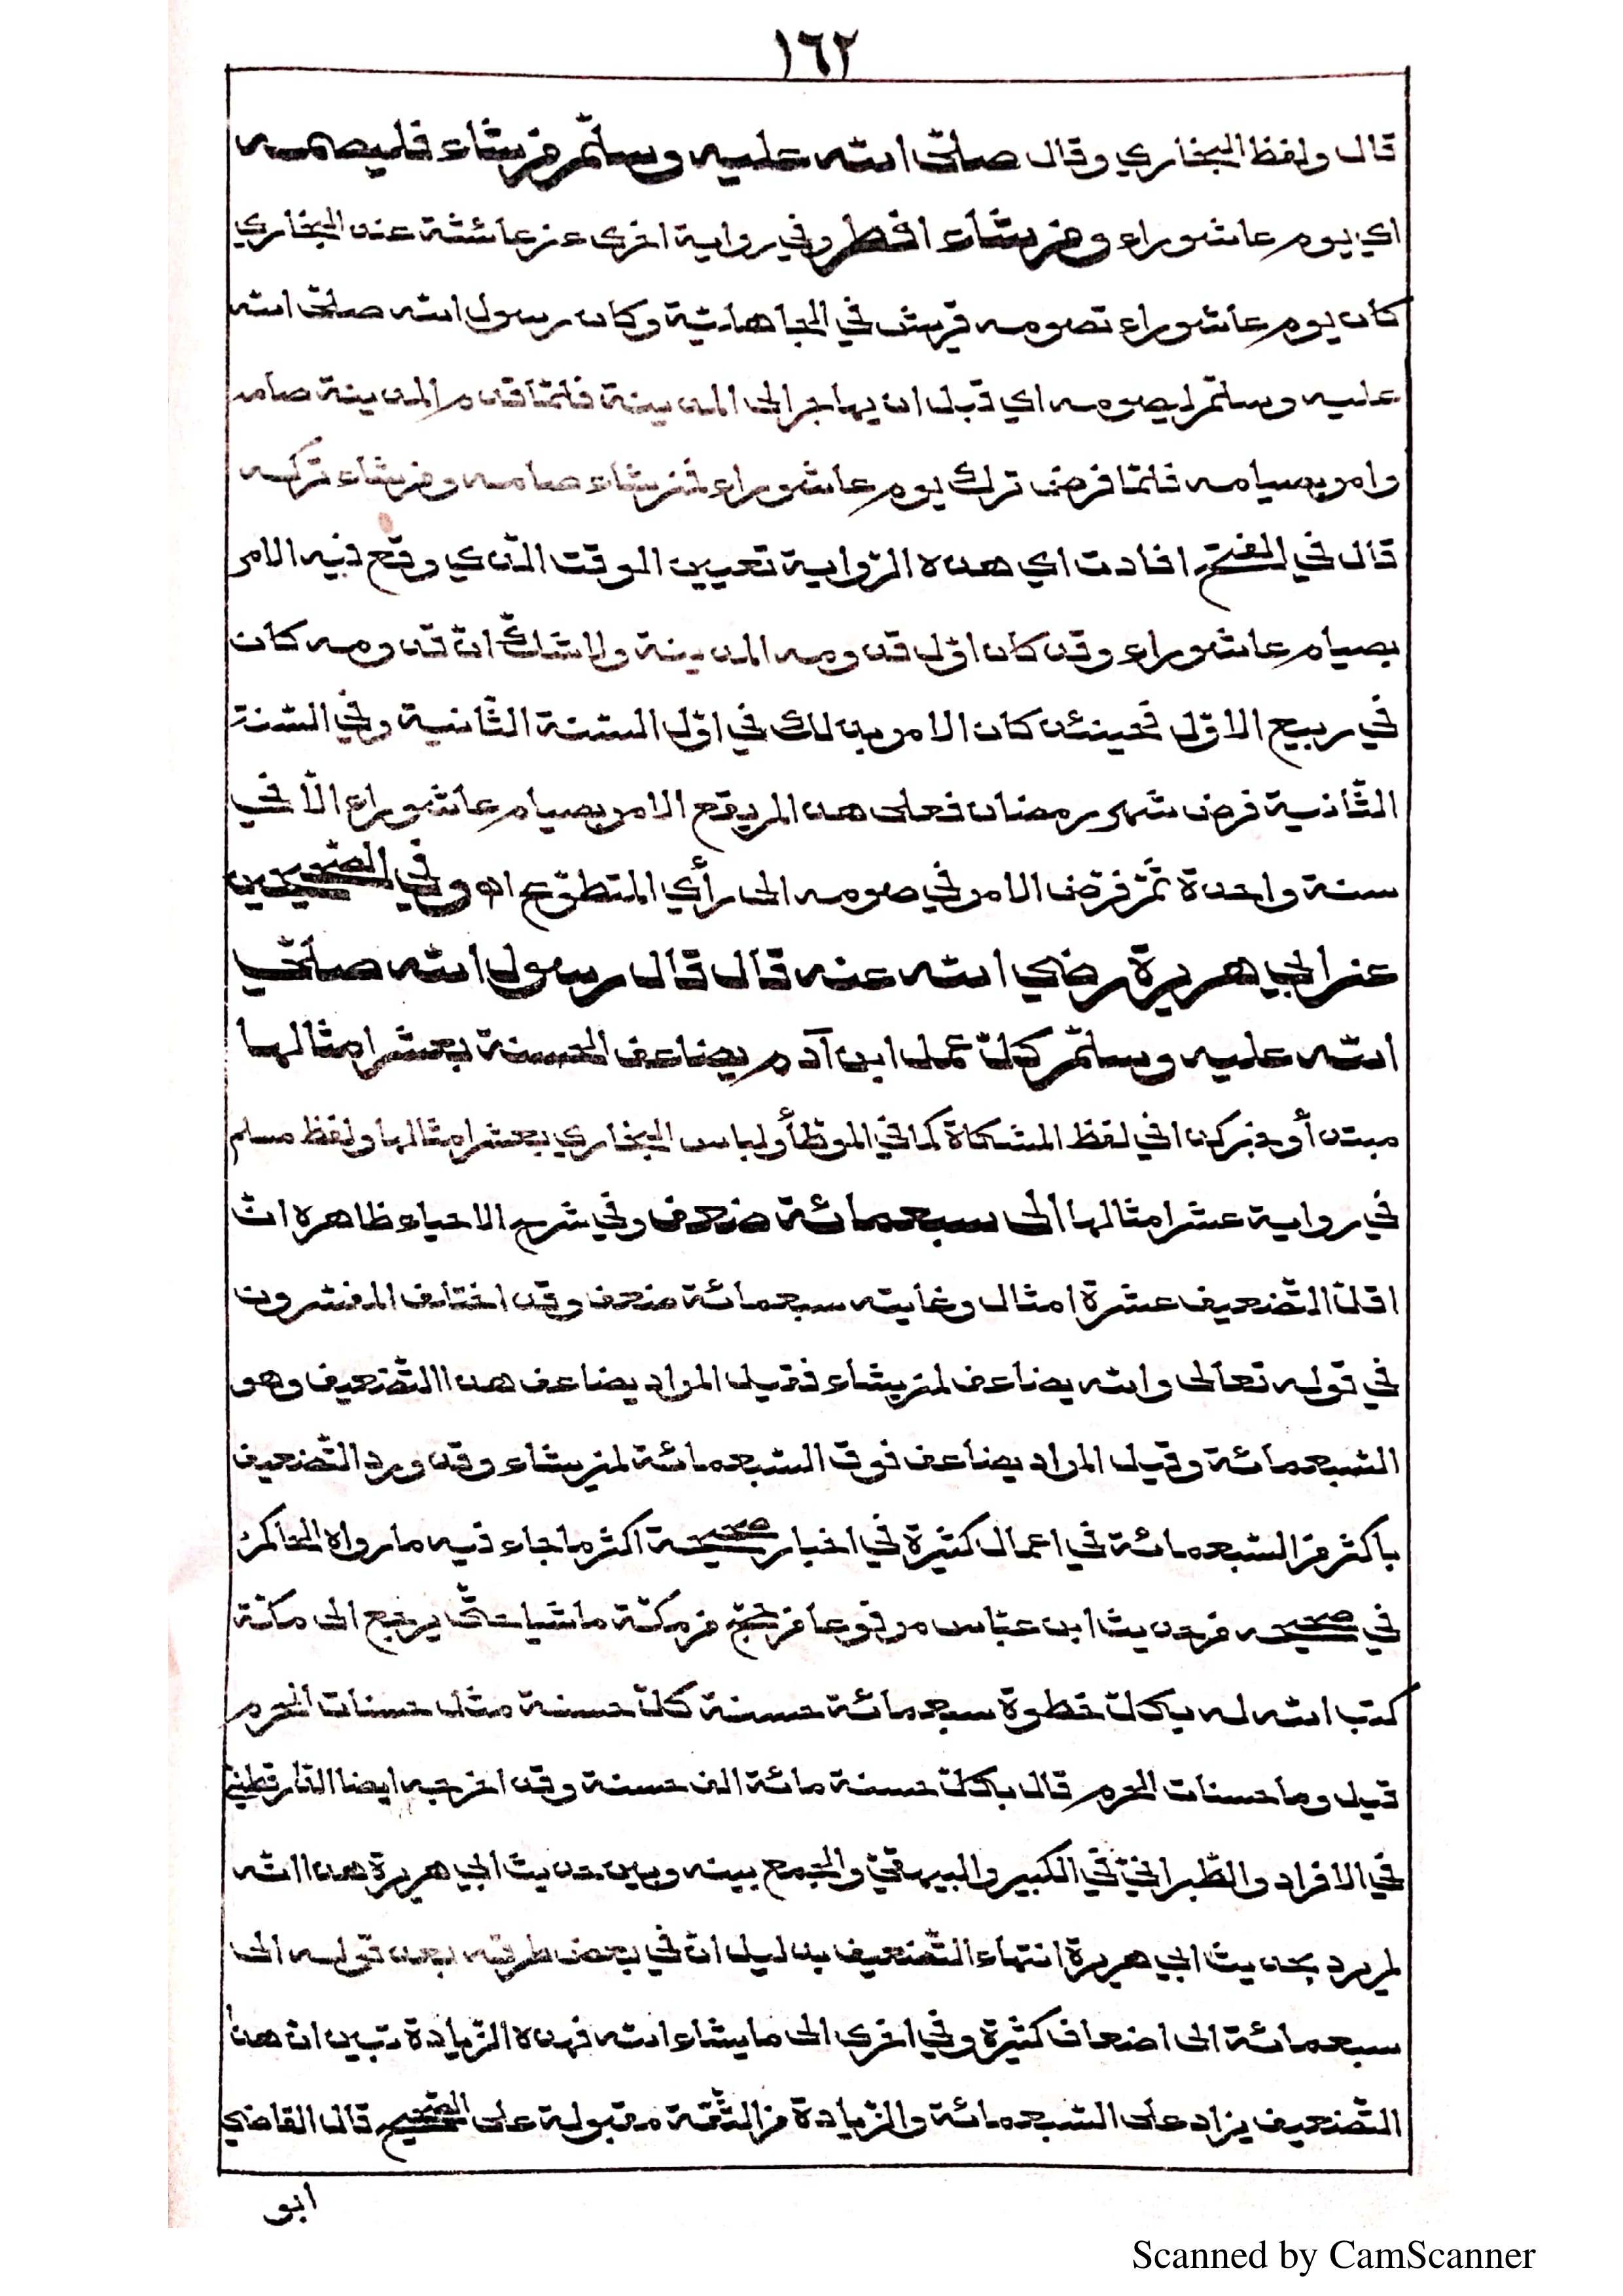 ١٦٢
قال ولفظ البخاري وقال صلّى الله عليه وسلّم من شاء فليصمه
اي يوم عاشوراء ومن شاء افطر وفي رواية اخرى عن عائشة عند البخاري
كان يوم عاشوراء تصومه قريش في الجاهليّة وكان رسول الله صلّى الله
عليه وسلّم يصومه اي قبل ان يهاجر الى المدينة فلمّا قدم المدينة صامه
وامر بصيامه فلمّا فرض ترك يوم عاشوراء فمن شاء صامه ومن شاء تركه
قال في الفتح افادت اي هذه الرّواية تعيين الوقت الّذي وقع فيه الامر
بصيام عاشوراء وقد كان اوّل قدومه المدينة ولا شكّ انّ قدومه كان
في ربيع الاوّل فحينئذ كان الامر بذلك في اوّل السّنة الثّانية وفي السّنة
الثّانية فرض شهر رمضان فعلى هذا لم يقع الامر بصيام عاشوراء الّا في
سنة واحدة ثمّ فرّض الامر في صومه الى رأي المتطوّع اه وفي الصّحيحين
عن ابي هريرة رضي الله عنه قال قال رسول الله صلّى
الله عليه وسلّم كلّ عمل ابن آدم يضاعف الحسنة بعشر امثالها
مبتدأ وخبر كذا في لفظ المشكاة كما في الموطّأ ولباس البخاري بعشر امثالها ولفظ مسلم
في رواية عشر امثالها الى سبعمائة ضعف وفي شرح الاحياء ظاهره انّ
اقلّ التّضعيف عشرة امثال وغايته سبعمائة ضعف وقد اختلف المفسّرون
في قوله تعالى والله يضاعف لمن يشاء فقيل المراد يضاعف هذا التّضعيف وهو
السّبعمائة وقيل المراد يضاعف فوق السّبعمائة لمن يشاء وقد ورد التّضعيف
باكثر من السّبعمائة في اعمال كثيرة في اخبار صحيحة اكثر ما جاء فيه ما رواه الحاكم
في صحيحه من حديث ابن عبّاس مرفوعا من حجّ من مكّة ماشيا حتّى يرجع الى مكّة
كتب الله له بكلّ خطوة سبعمائة حسنة كلّ حسنة مثل حسنات الحرم
قيل وما حسنات الحرم قال بكلّ حسنة مائة الف حسنة وقد اخرجه ايضا الدّارقطنيّ
في الافراد والطّبرانيّ في الكبير والبيهقيّ والجمع بينه وبين حديث ابي هريرة هذا انّه
لم يرد بحديث ابي هريرة انتهاء التّضعيف بدليل انّ في بعض طرقه بعد قوله الى
سبعمائة الى اضعاف كثيرة وفي اخرى الى ما يشاء الله فهذه الزّيادة تبين انّ هذا
التّضعيف يزاد على السّبعمائة والزّيادة من الثّقة مقبولة على الصّحيح قال القاضي
ابو
Scanned by CamScanner